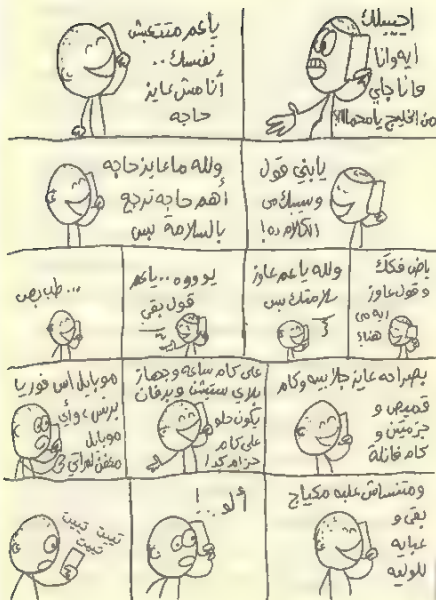 اجيبلك
ايه وانا
جاي
من الخليج يا محمااا!!
يا عم متتعبش
نفسك..
أنا مش عايز
حاجه
يابني قول
وسيبك من
الكلام ده!
ولله ما عايز حاجه
أهم حاجه ترجع
بالسلامة بس
ياض فكك
وقول عاوز
ايه من
هنا؟
ولله يا عم عاوز
سلامتك بس
يووووه..يا عم
قول بقى
...طب بص
بصراحه عايز جلابيه وكام
قميص و
جزمتين و
كام فانلة
على كام ساعه وجهاز
بلاي ستيشن وبرفان
يكون حلو
على كام
حزام كدا!
موبايل اس فوريا
برنس، وأي
موبايل
لمراتي
ومتنساش علبه مكياج
بقى و
عبايه
للوليه
ألو..!
تييت تييت
تييت تييت